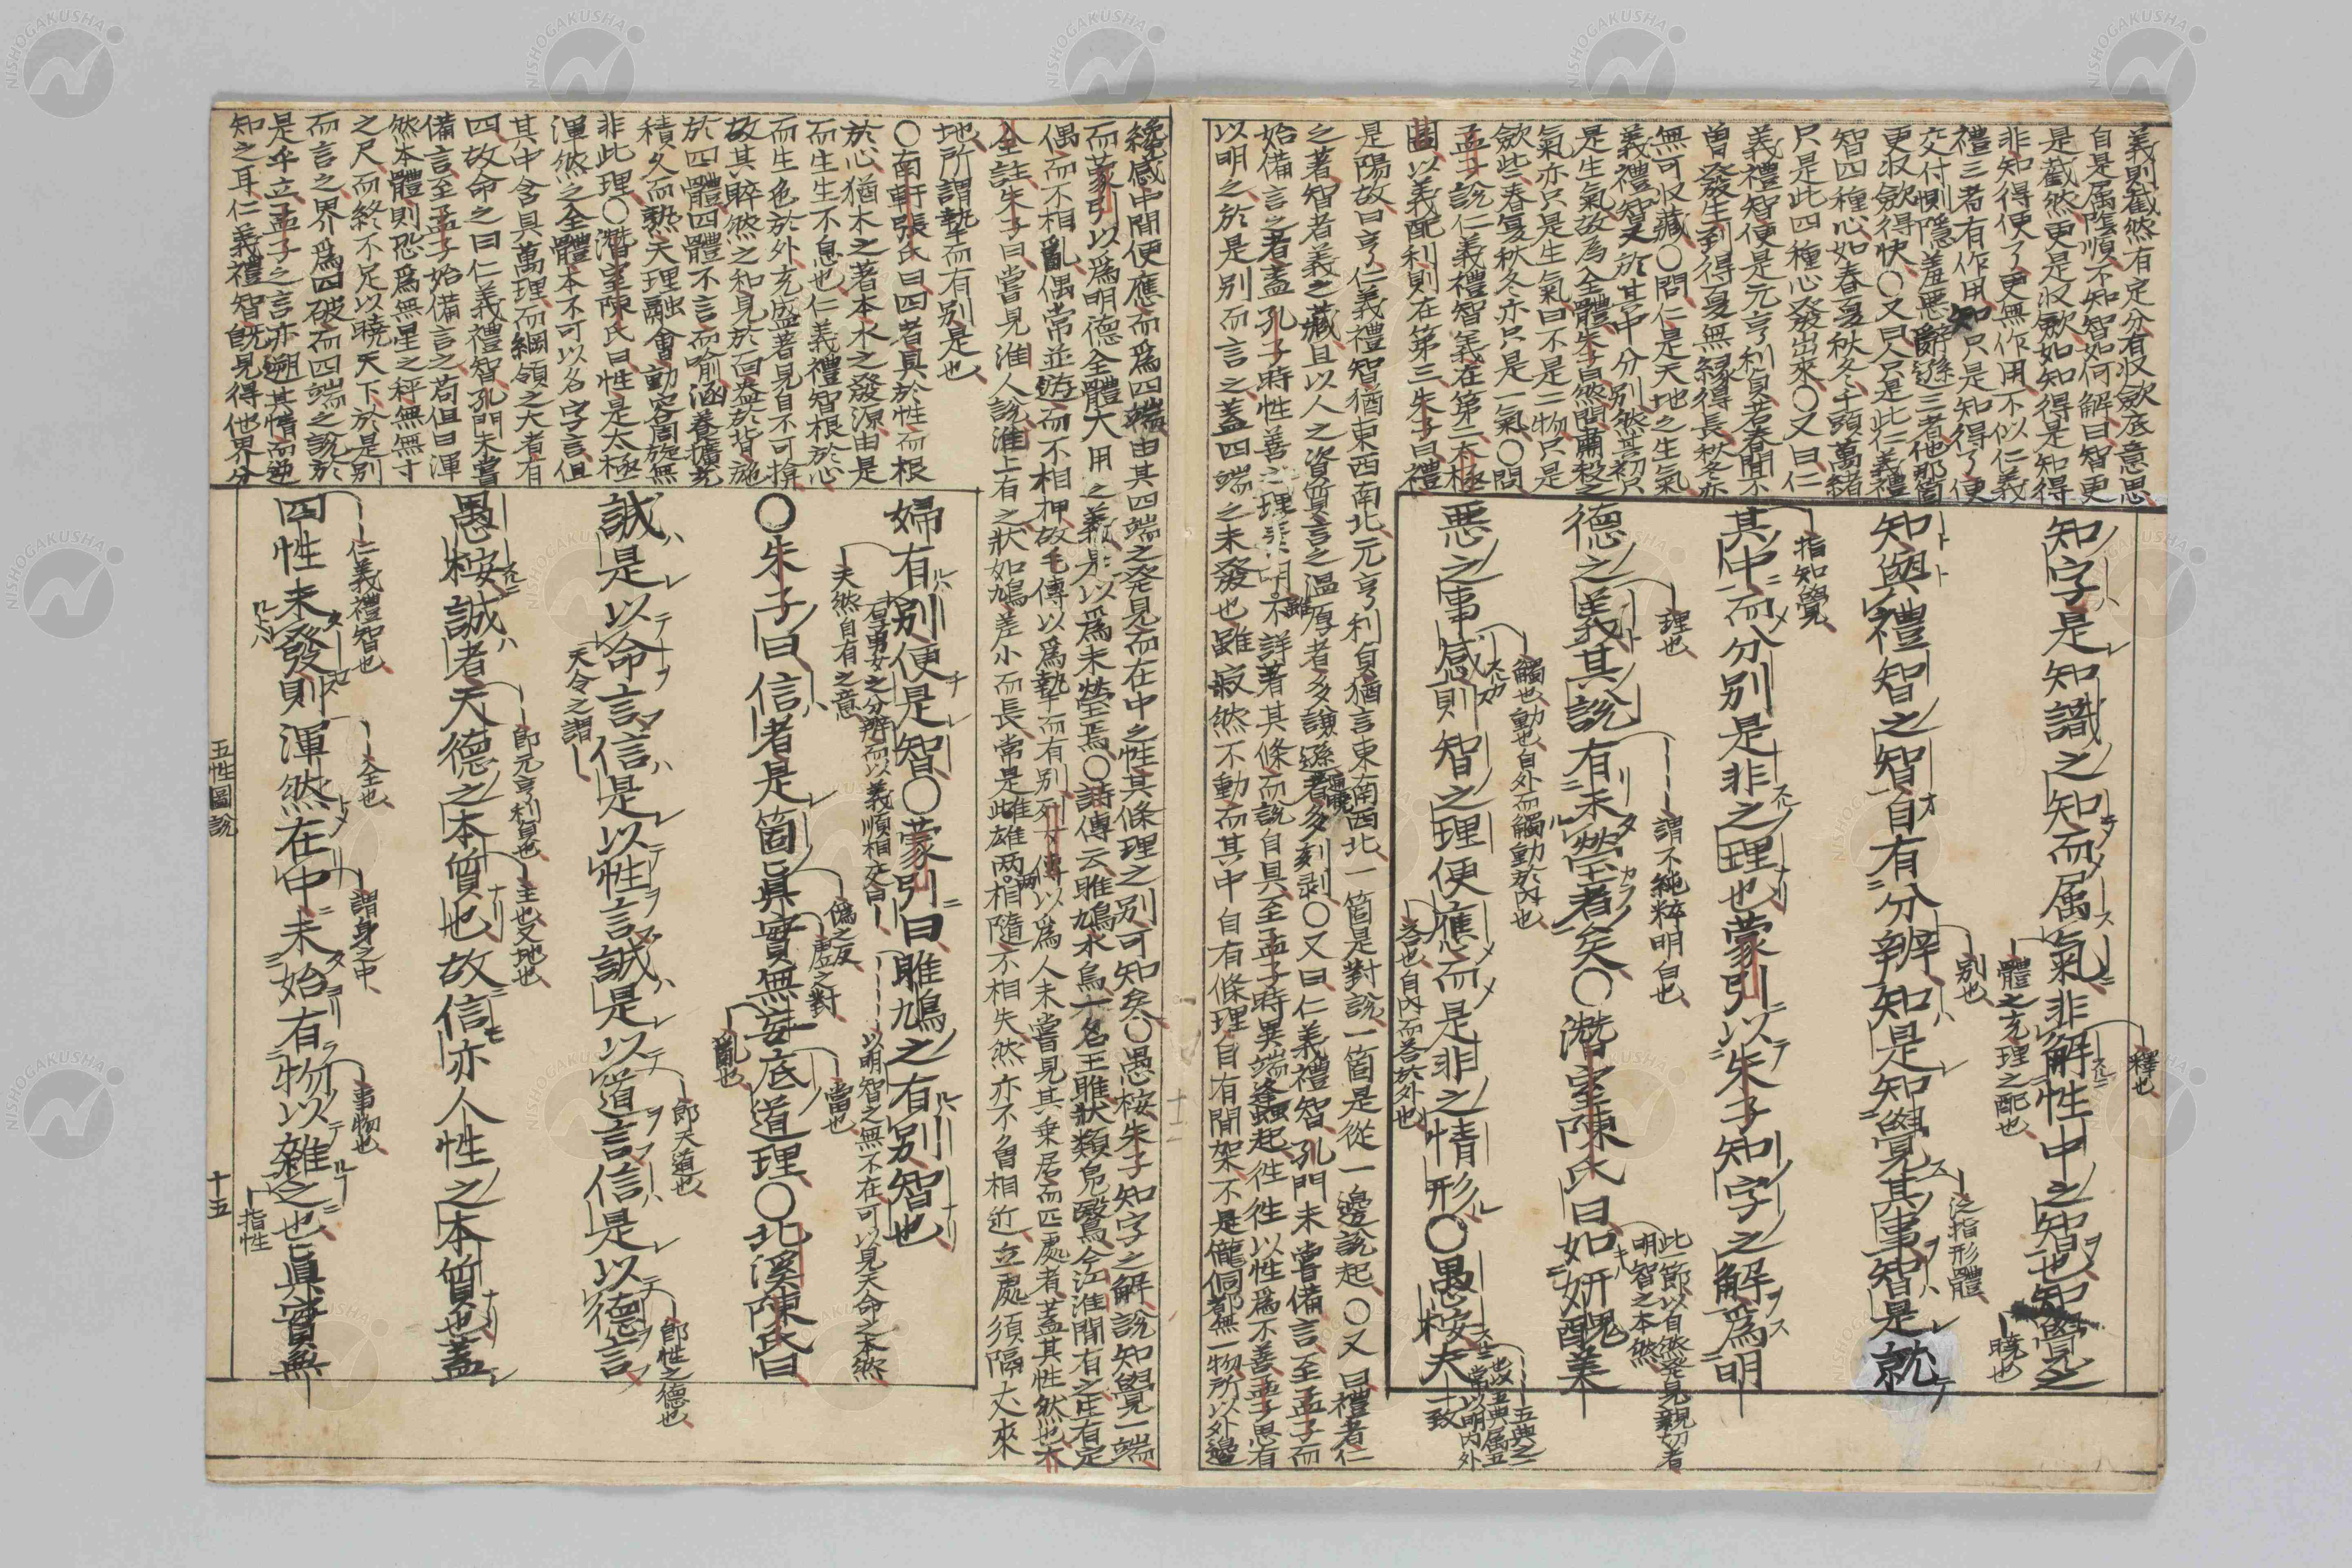 義則截然有定分有収斂底意思
自是属陰順不知智如何解曰智更
是截然更是収斂如知得是知得
非知得便了更無作用不似仁義
禮三者有作用知只是知得了便
交付惻隱羞惡辭遜三者他那箇
更収斂得快○又曰只是此仁義禮
智四種心如春夏秋冬千頭萬緒
只是此四種心發出來○又曰仁
義禮智便是元亨利貞若春間不
曽發生到得夏無縁得長秋冬亦
無可収藏○問仁是天地之生氣
義禮智又於其中分別然其初只
是生氣故為全體朱子曰然問肅殺之
氣亦只是生氣曰不是二物只是
斂些春夏秋冬亦只是一氣○問
孟子説仁義禮智義在第二太極
圖以義配利則在第三朱子曰禮
是陽故曰亨仁義禮智猶東西南北元亨利貞猶言東南西北一箇是對説一箇是從一邊説起○又曰禮者仁
之著智者義之藏且以人之資質言之温厚者多謙遜通曉者多刻剥○又曰仁義禮智孔門未嘗備言至孟子而
始備言之者盖孔子時性善之理素明雖不詳著其條而説自具至孟子時異端逢起徃徃以性爲不善孟子思有
以明之於是別而言之盖四端之未發也雖寂然不動而其中自有條理自有間架不是儱侗都無一物所以外邊
知字是知識之知而属氣非解性中之智也知覺之
釋也
體之充理之配也
曉也
知與禮智之智自有分辨知是知覺其事智是就
別也
泛指形體
其中而分別是非之理也蒙引以朱子知字之解爲明
指知覺
德之義其説有未瑩者矣○潛室陳氏曰如妍醜美
理也
謂不純粹明白也
此節以自然発見親切者
明智之本然
惡之事感則智之理便應而是非之情形○愚桉夫
觸也動也自外而觸動於内也
荅也自内而荅於外也
纔感中間便應而爲四端由其四端之発見而在中之性其條理之別可知矣○愚桉朱子知字之解説知覺一端
而蒙引以爲明德全體大用之義是以爲未瑩焉○詩傳云雎鳩水鳥一名王雎狀類鳬鷖今江淮間有之生有定
偶而不相亂偶常並遊而不相狎故毛傳以爲摯而有別列女傳以爲人未嘗見其乗居而匹處者盖其性然也
全註朱子曰嘗見淮人説淮上有之狀如鳩差小而長常是雌雄两两相隨不相失然亦不曽相近立處須隔丈來
地所謂摯而有別是也
○南軒張氏曰四者具於性而根
於心猶木之著本水之發源由是
而生生不息也仁義禮智根於心
而生色於外充盛著見自不可揜
故其睟然之和見於面盎於背施
於四體四體不言而喻涵養擴充
積久而熟天理融會動容周旋無
非此理○潛室陳氏曰性是太極
渾然之全體本不可以名字言但
其中含具萬理而綱領之大者有
四故命之曰仁義禮智孔門未嘗
備言至孟子始備言之苟但曰渾
然本體則恐爲無星之秤無無寸
之尺而終不足以曉天下於是別
而言之界爲四破而四端之説於
是乎立孟子之言亦遡其情而逆
知之耳仁義禮智旣見得他界分
婦有別便是智○蒙引曰雎鳩之有別智也
天然自有之意
以明智之無不在可以見天命之本然
○朱子曰信者是箇眞實無妄底道理○北溪陳氏曰
僞之反
虚之對
亂也
當也
誠是以命言信是以性言誠是以道言信是以德言
天令之謂
即天道也
即性之德也
愚桉誠者天德之本質也故信亦人性之本質也蓋
即元亨利貞也
主也又地也
四性未發則渾然在中未始有物以雜之也眞實無
仁義禮智也
全也
謂身之中
事物也
指性
五性圖説
十五